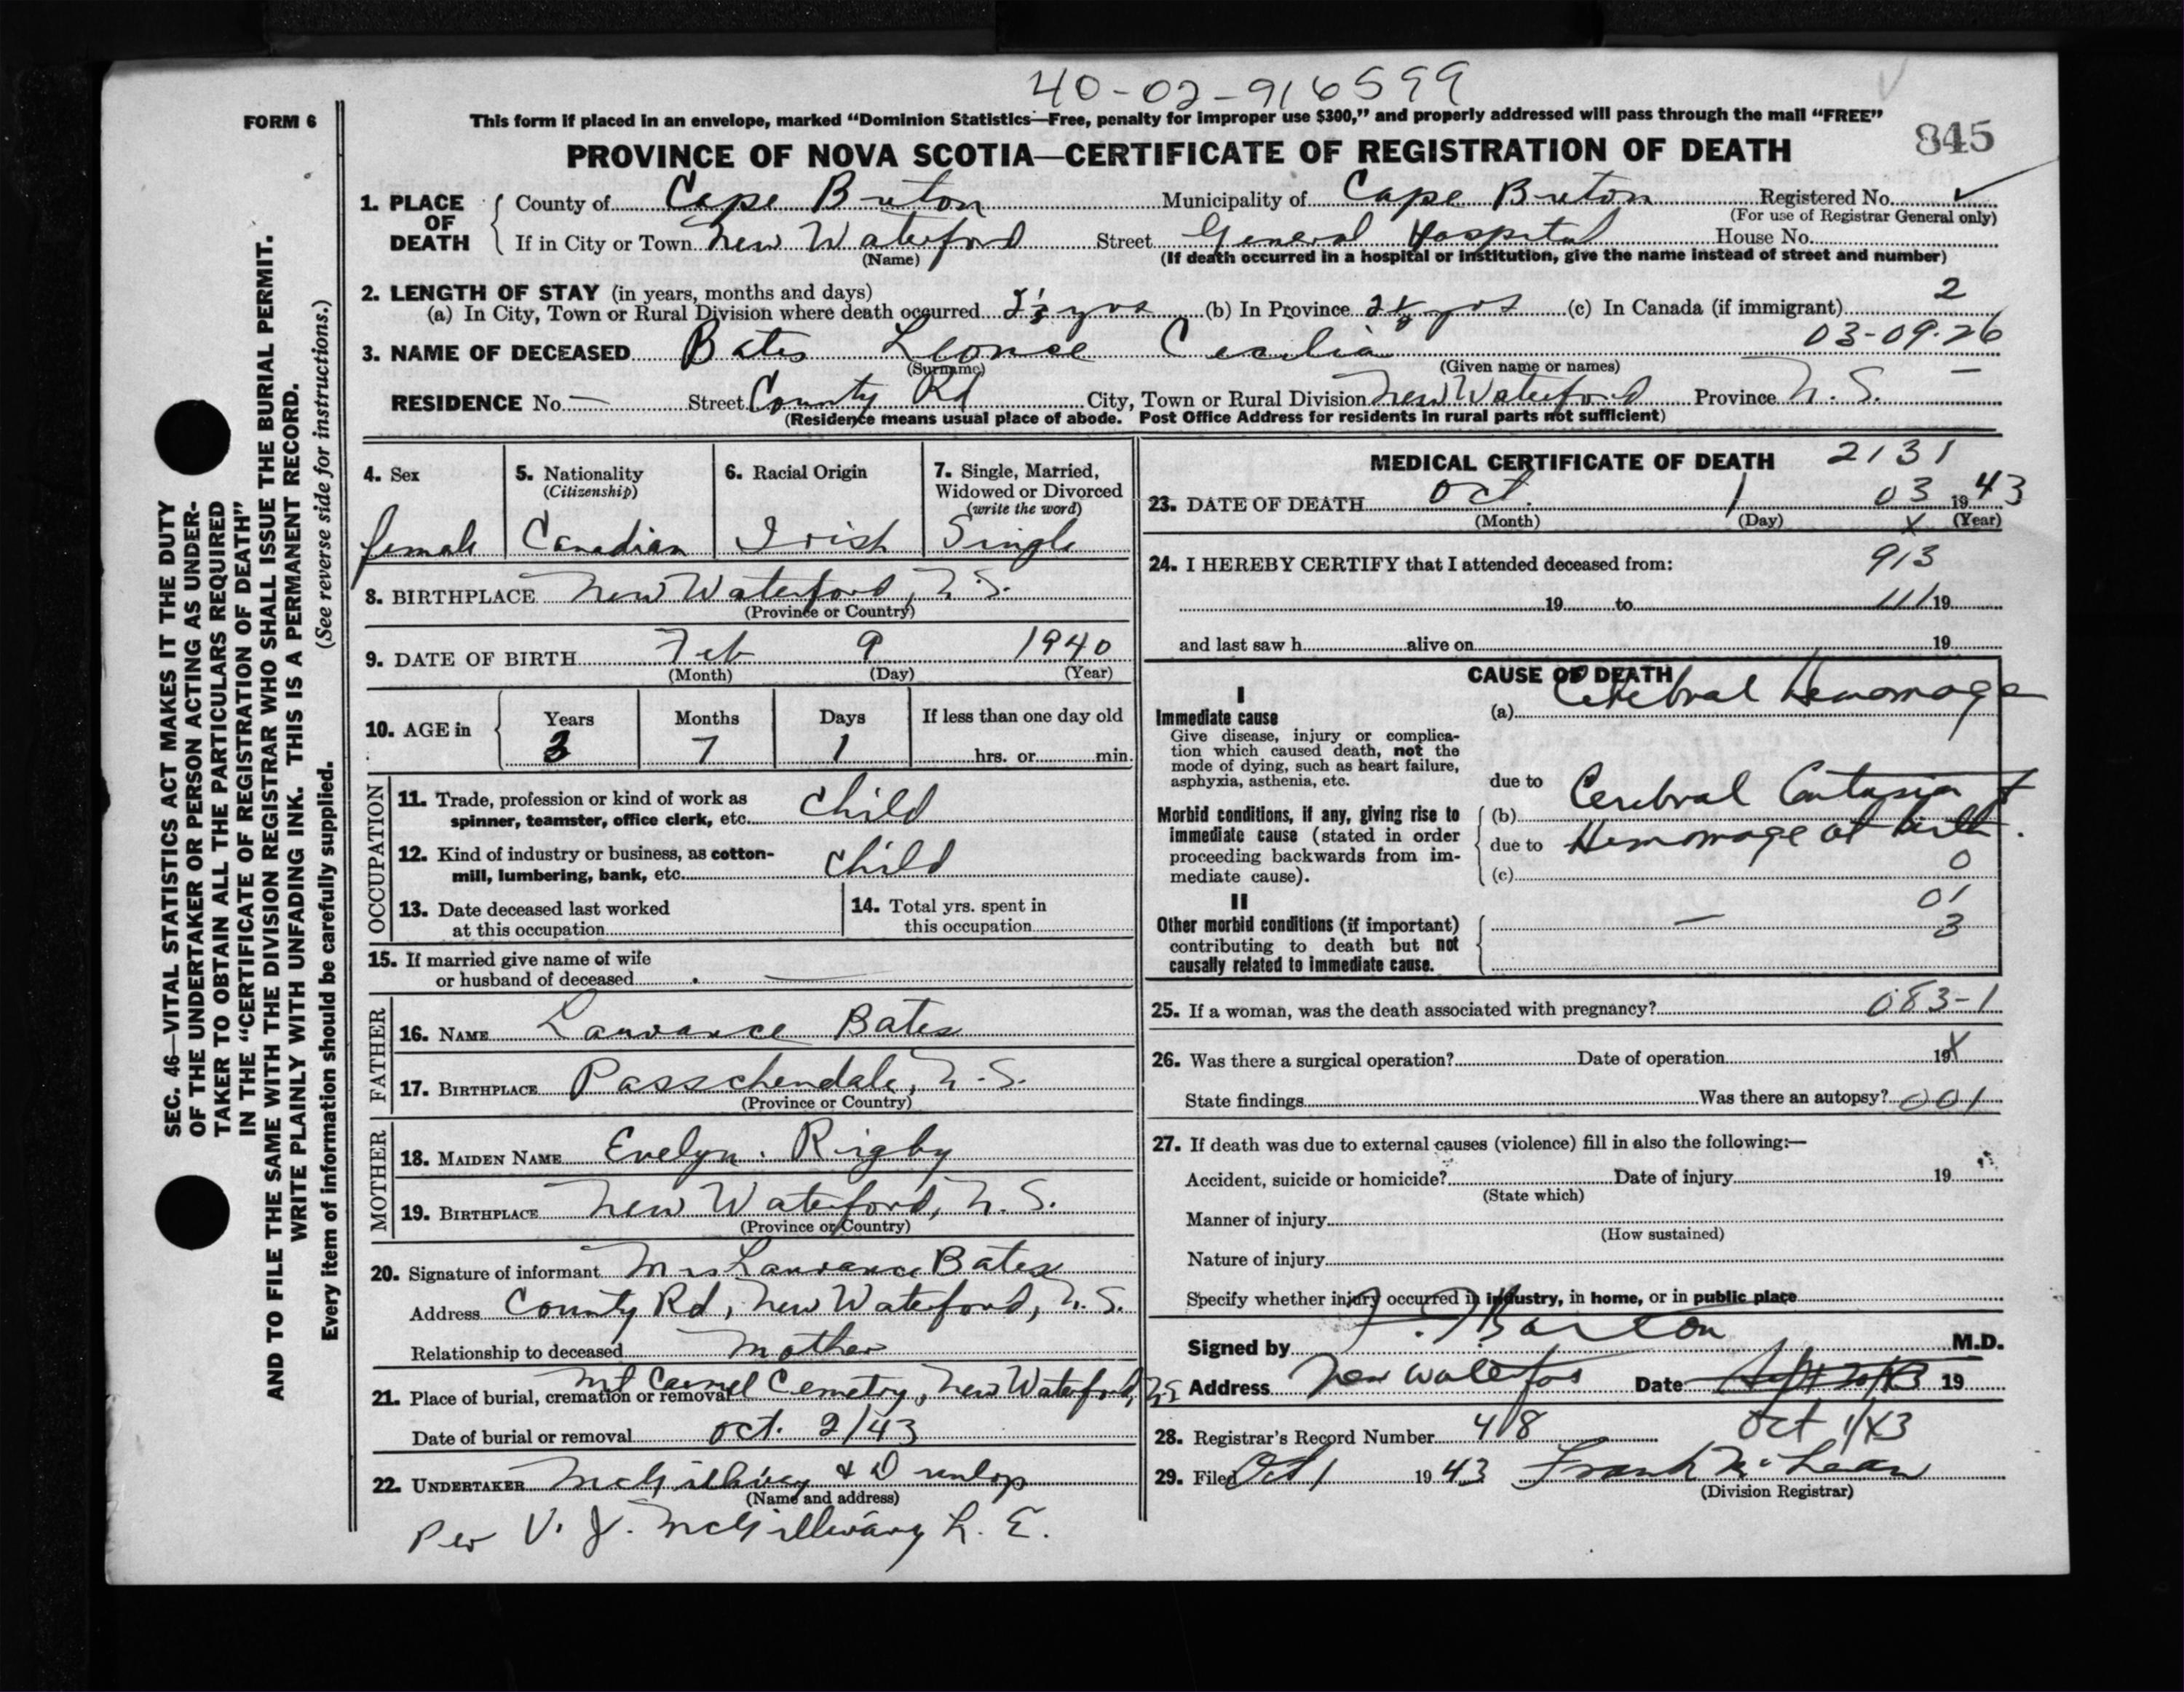 40-02-916599
FORM 6
This form if placed in an envelope, marked "Dominion Statistics—Free, penalty for improper use $300," and properly addressed will pass through the mail "FREE"
845
PROVINCE OF NOVA SCOTIA—CERTIFICATE OF REGISTRATION OF DEATH
1. PLACE OF DEATH County of Cape Breton Municipality of Cape Breton Registered No.
(For use of Registrar General only)
If in City or Town New Waterford Street General Hospital House No.
(Name) (If death occurred in a hospital or institution, give the name instead of street and number)
2. LENGTH OF STAY (in years, months and days)
(a) In City, Town or Rural Division where death occurred yrs (b) In Province yrs (c) In Canada (if immigrant) 2
03-09-26
3. NAME OF DECEASED Bates Leonce Cecilia
(Surname) (Given name or names)
RESIDENCE No. — Street County Rd City, Town or Rural Division New Waterford Province N. S. —
(Residence means usual place of abode. Post Office Address for residents in rural parts not sufficient)
4. Sex
female
5. Nationality
(Citizenship)
Canadian
6. Racial Origin
Irish
7. Single, Married,
Widowed or Divorced
(write the word)
Single
8. BIRTHPLACE New Waterford, N. S.
(Province or Country)
9. DATE OF BIRTH Feb 9 1940
(Month) (Day) (Year)
10. AGE in Years Months Days If less than one day old
3 7 1 hrs. or min.
OCCUPATION
11. Trade, profession or kind of work as
spinner, teamster, office clerk, etc. child
12. Kind of industry or business, as cotton-
mill, lumbering, bank, etc. child
13. Date deceased last worked
at this occupation
14. Total yrs. spent in
this occupation
15. If married give name of wife
or husband of deceased
FATHER
16. NAME Laurance Bates
17. BIRTHPLACE Passchendale, N. S.
(Province or Country)
MOTHER
18. MAIDEN NAME Evelyn. Rigby
19. BIRTHPLACE New Waterford, N. S.
(Province or Country)
20. Signature of informant Mrs Laurance Bates
Address County Rd, New Waterford, N. S.
Relationship to deceased Mother
21. Place of burial, cremation or removal Mt Carmel Cemetry, New Waterford, N.S
Date of burial or removal oct. 2/43
22. UNDERTAKER McGillivray & Dunlop
(Name and address)
Per V. J. McGillivary L. E.
MEDICAL CERTIFICATE OF DEATH 2131
23. DATE OF DEATH Oct. 1 03 1943
(Month) (Day) X (Year)
24. I HEREBY CERTIFY that I attended deceased from: 913
19 to 111 19
and last saw h alive on 19
CAUSE OF DEATH
I
Immediate cause
Give disease, injury or complica-
tion which caused death, not the
mode of dying, such as heart failure,
asphyxia, asthenia, etc.
(a) Cerebral Hemorrage
due to
Morbid conditions, if any, giving rise to
immediate cause (stated in order
proceeding backwards from im-
mediate cause).
(b) Cerebral Contusion +
due to Hemorrage at birth.
(c) 0
II
Other morbid conditions (if important)
contributing to death but not
causally related to immediate cause.
—
01
3
25. If a woman, was the death associated with pregnancy? 083-1
26. Was there a surgical operation? Date of operation 19 X
State findings Was there an autopsy? 001
27. If death was due to external causes (violence) fill in also the following:—
Accident, suicide or homicide? Date of injury 19
(State which)
Manner of injury
(How sustained)
Nature of injury
Specify whether injury occurred in industry, in home, or in public place
Signed by Barton M.D.
Address New Waterford Date 19
Oct 1/43
28. Registrar's Record Number 418
29. Filed Oct 1 1943 Frank McLean
(Division Registrar)
SEC. 46—VITAL STATISTICS ACT MAKES IT THE DUTY
OF THE UNDERTAKER OR PERSON ACTING AS UNDER-
TAKER TO OBTAIN ALL THE PARTICULARS REQUIRED
IN THE "CERTIFICATE OF REGISTRATION OF DEATH"
AND TO FILE THE SAME WITH THE DIVISION REGISTRAR WHO SHALL ISSUE THE BURIAL PERMIT.
WRITE PLAINLY WITH UNFADING INK. THIS IS A PERMANENT RECORD.
Every item of information should be carefully supplied. (See reverse side for instructions.)